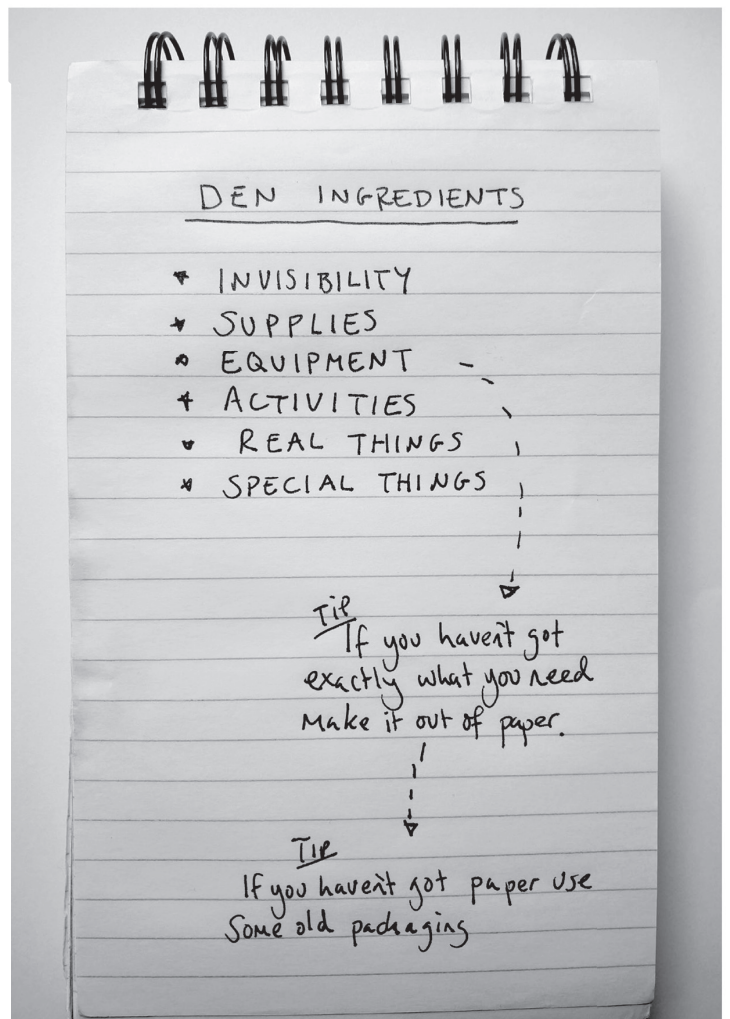 DEN INGREDIENTS
* INVISIBILITY
* SUPPLIES
* EQUIPMENT
* ACTIVITIES
* REAL THINGS
* SPECIAL THINGS
Tip
If you haven't got
exactly what you need
Make it out of paper.
Tip
If you haven't got paper use
Some old packaging